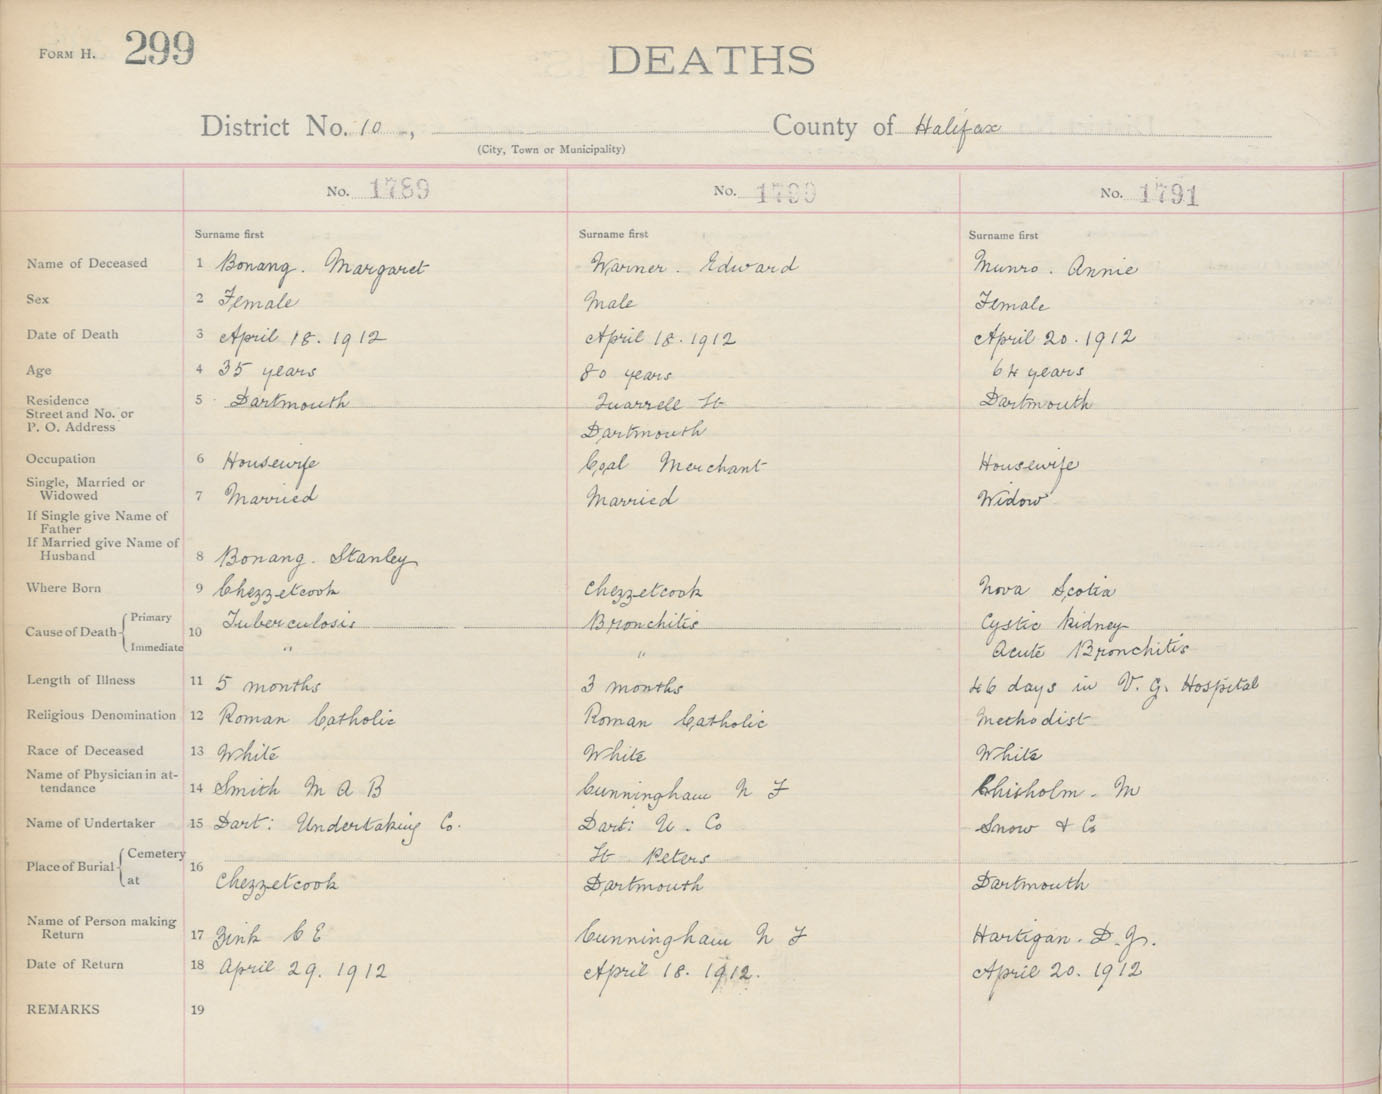 FORM H. 299
DEATHS
District No. 10, County of Halifax
(City, Town or Municipality)
No. 1789 No. 1790 No. 1791
Surname first Surname first Surname first
Name of Deceased 1 Bonang. Margaret Warner. Edward Munro. Annie
Sex 2 Female Male Female
Date of Death 3 April 18. 1912 April 18. 1912 April 20. 1912
Age 4 35 years 80 years 64 years
Residence 5 Dartmouth St Dartmouth
Street and No. or
P. O. Address Dartmouth
Occupation 6 Housewife Coal Merchant Housewife
Single, Married or
Widowed 7 Married Married Widow
If Single give Name of
Father
If Married give Name of
Husband 8 Bonang. Stanley
Where Born 9 Chezzetcook Chezzetcook Nova Scotia
Cause of Death Primary 10 Tuberculosis Bronchitis Cystic Kidney
Immediate " " Acute Bronchitis
Length of Illness 11 5 months 3 months 46 days in V. G. Hospital
Religious Denomination 12 Roman Catholic Roman Catholic Methodist
Race of Deceased 13 White White White
Name of Physician in at-
tendance 14 Smith M A B Cunningham N F Chisholm - M
Name of Undertaker 15 Dart: Undertaking Co. Dart: U. Co Snow & Co
Place of Burial Cemetery 16 St Peters
at Chezzetcook Dartmouth Dartmouth
Name of Person making
Return 17 Zink C E Cunningham N F Hartigan. D. J.
Date of Return 18 April 29. 1912 April 18. 1912. April 20. 1912
REMARKS 19